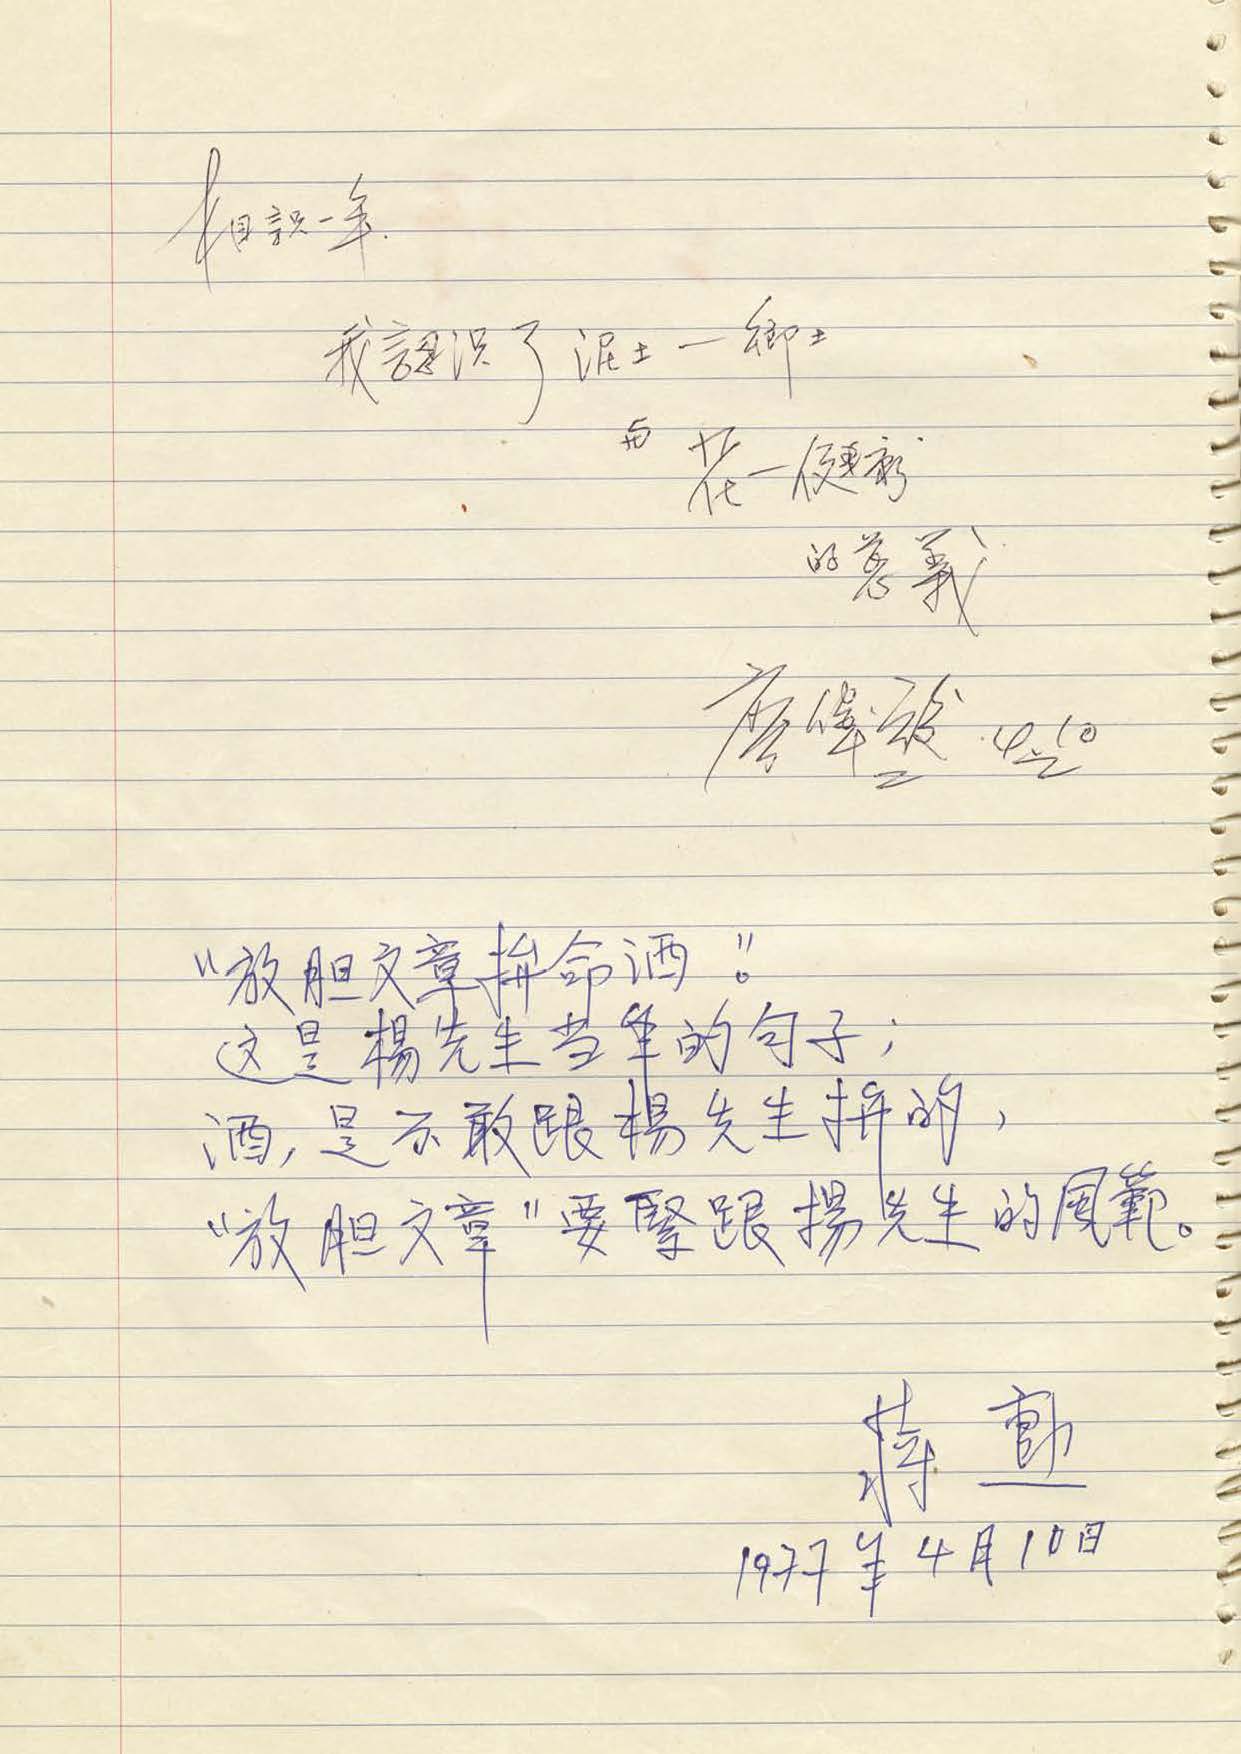 相識一年.
我認識了泥土—鄉土
與 花—
的意義
廖偉竣 4.10
“放胆文章拚命酒”。
这是楊先生当年的句子；
酒，是不敢跟楊先生拼的，
“放胆文章”要緊跟楊先生的風範。
蔣勳
1977年4月10日